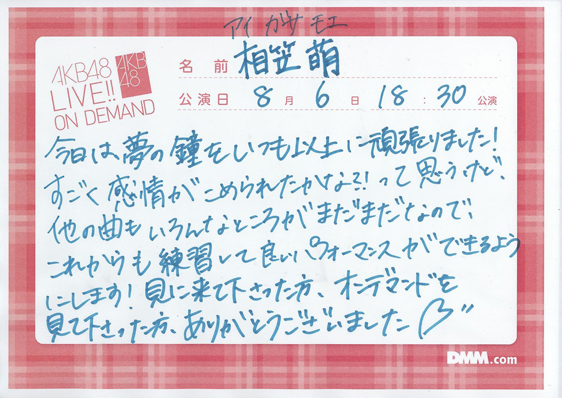 アイ ガサ モエ
AKB48
LIVE!!
ON DEMAND
AKB
48
名前 相笠 萌
公演日 8月6日 18:30 公演
今日は夢の鐘をいつも以上に頑張りました!
すごく感情がこめられたかな?!って思うけど、
他の曲もいろんなところがまだまだなので、
これからも練習して良いパフォーマンスができるよう
にします!見に来て下さった方、オンデマンドを
見て下さった方、ありがとうございました
DMM.com